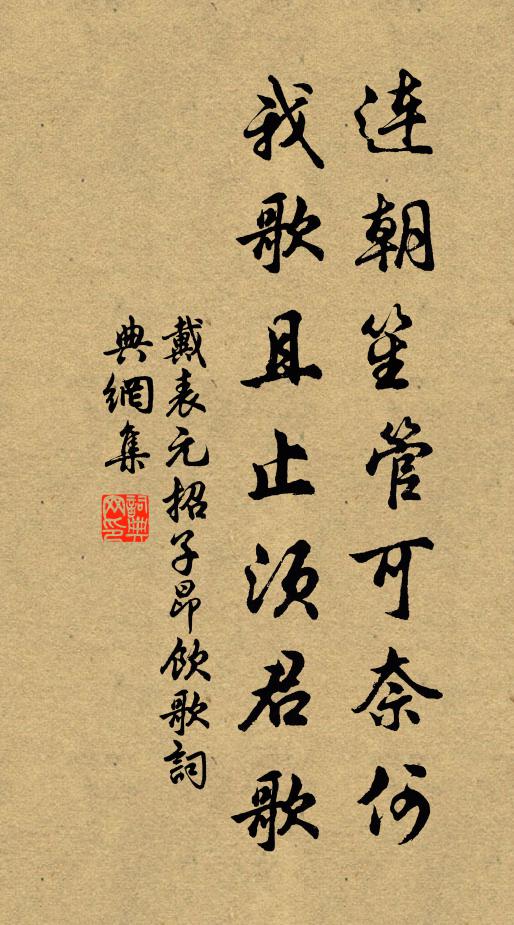 連朝笙管可奈何
我歌且止須君歌
戴表元招子昂飲歌詞
典網集
詞典
网印